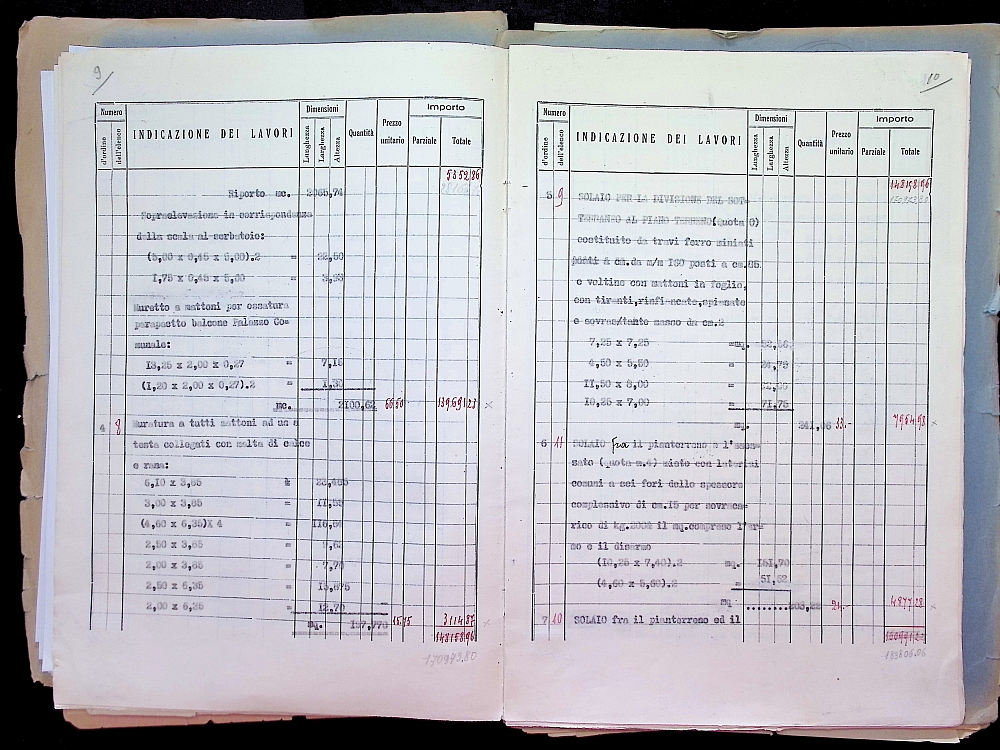 9/
Numero
d'ordine
dell'elenco
INDICAZIONE DEI LAVORI
Dimensioni
Lunghezza
Larghezza
Altezza
Quantità
Prezzo unitario
Importo
Parziale
Totale
5352,86
Riporto mc. 2065,74
Sopraelevazione in corrispondenza
della scala al serbatoio:
(5,00 x 0,45 x 5,00).2 = 22,50
1,75 x 0,45 x 5,00 =
Muretto a mattoni per ossatura
parapetto balcone Palazzo Co-
munale:
13,25 x 2,00 x 0,27 = 7,16
(1,20 x 2,00 x 0,27).2 =
mc. 2100,62 66,50 139.691,23
4 8 Muratura a tutti mattoni ad una
testa collegati con malta di calce
e rena:
6,10 x 3,85 =
3,00 x 3,85 = 11,55
(4,60 x 6,35)x 4 =
2,50 x 3,85 = 9,62
2,00 x 3,85 = 7,70
2,50 x 6,35 = 15,875
2,00 x 6,35 = 12,70
mq. 197,770 15,75 3114,87
148158,96
170973.80
10/
Numero
d'ordine
dell'elenco
INDICAZIONE DEI LAVORI
Dimensioni
Lunghezza
Larghezza
Altezza
Quantità
Prezzo unitario
Importo
Parziale
Totale
148158,96
5 9 SOLAIO PER LA DIVISIONE DEL SOT-
TERRANEO AL PIANO TERRENO(quota 0)
costituito da travi ferro miniati
posti a cm.da m/m 180 posti a cm.85
e voltine con mattoni in foglio,
con tiranti,rinfiancate,spianate
e sovrastante masso da cm.2
7,25 x 7,25 =mq. 52,56
4,50 x 5,50 = 24,75
11,50 x 8,00 =
10,25 x 7,00 = 71,75
mq. 241,06 33.- 7954,98
6 11 SOLAIO fra il pianterreno e l'ammez-
zato (quota m.4) misto con laterizi
comuni a sei fori dello spessore
complessivo di cm.15 per sovracca-
rico di kg.200% il mq.compreso l'ar-
mo e il disarmo
(10,25 x 7,40).2 mq. 151,70
(4,60 x 5,60).2 = 51,52
mq .........203,22 24.- 4877,28
7 10 SOLAIO fra il pianterreno ed il
183806.06